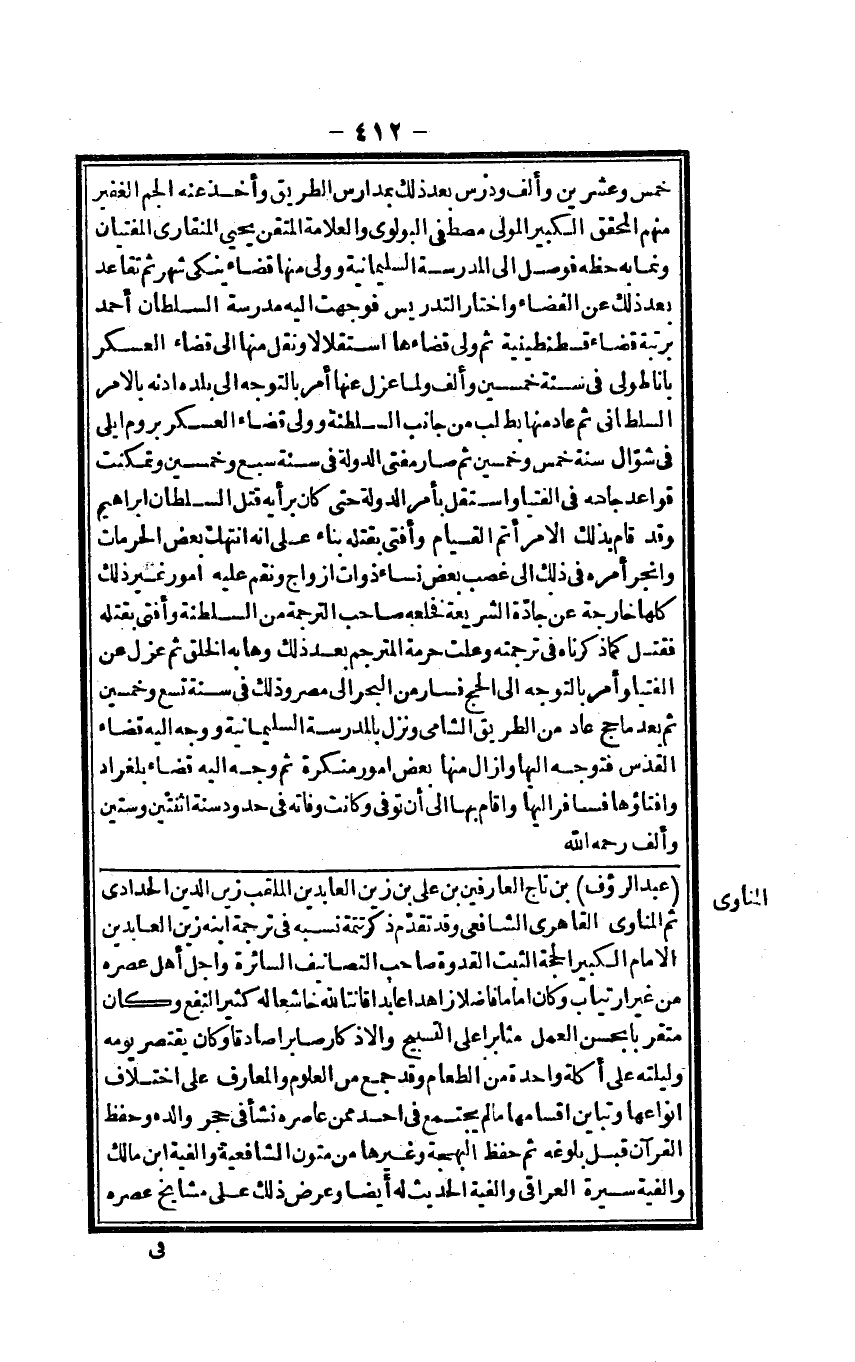 - ٤١٢ -
خمس وعشرين وألف ودرّس بعد ذلك بمدارس الطريق وأخذ عنه الجم الغفير
منهم المحقق الكبير المولى مصطفى البولوى والعلامة المتقن يحيى المنقارى المفتيان
ونما به حظه فوصل الى المدرسة السليمانية وولى منها قضاء ينكى شهر ثم تقاعد
بعد ذلك عن القضاء واختار التدريس فوجهت اليه مدرسة السلطان أحمد
برتبة قضاء قسطنطينية ثم ولى قضاءها استقلالا ونقل منها الى قضاء العسكر
باناطولى فى سنة خمسين وألف ولما عزل عنها أمر بالتوجه الى بلده ادنه بالامر
السلطانى ثم عاد منها بطلب من جانب السلطنة وولى قضاء العسكر بروم ايلى
فى شوّال سنة خمس وخمسين ثم صار مفتى الدولة فى سنة سبع وخمسين وتمكنت
قواعد جاهه فى الفتيا واستقل بأمر الدولة حتى كان برأيه قتل السلطان ابراهيم
وقد قام بذلك الامر أتم القيام وأفتى بقتله بناء على انه انتهك بعض الحرمات
وانجر أمره فى ذلك الى غصب بعض نساء ذوات ازواج ونقم عليه امور غير ذلك
كلها خارجة عن جادّة الشريعة فخلعه صاحب الترجمة من السلطنة وأفتى بقتله
فقتل كما ذكرناه فى ترجمته وعلت حرمة المترجم بعد ذلك وهابه الخلق ثم عزل عن
الفتيا وأمر بالتوجه الى الحج فسار من البحر الى مصر وذلك فى سنة تسع وخمسين
ثم بعد ما حج عاد من الطريق الشامى ونزل بالمدرسة السليمانية ووجه اليه قضاء
القدس فتوجه اليها وازال منها بعض امور منكرة ثم وجه اليه قضاء بلغراد
وافتاؤها فسافر اليها واقام بها الى أن توفى وكانت وفاته فى حدود سنة اثنتين وستين
وألف رحمه الله
المناوى
(عبد الرؤف) بن تاج العارفين بن على بن زين العابدين الملقب زين الدين الحدادى
ثم المناوى القاهرى الشافعى وقد تقدّم ذكر تتمة نسبه فى ترجمة ابنه زين العابدين
الامام الكبير الحجة الثبت القدوة صاحب التصانيف السائرة واجل أهل عصره
من غير ارتياب وكان اماما فاضلا زاهدا عابدا قانتا لله خاشعا له كثير النفع وكان
متقربا بحسن العمل مثابرا على التسبيح والاذكار صابرا صادقا وكان يقتصر يومه
وليلته على أكلة واحدة من الطعام وقد جمع من العلوم والمعارف على اختلاف
انواعها وتباين اقسامها مالم يجتمع فى احد ممن عاصره نشأ فى حجر والده وحفظ
القرآن قبل بلوغه ثم حفظ البهجة وغيرها من متون الشافعية والفية ابن مالك
والفية سيرة العراقى والفية الحديث له أيضا وعرض ذلك على مشايخ عصره
فى